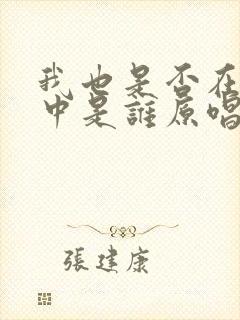 我也是否在
中是誰原唱
張建康